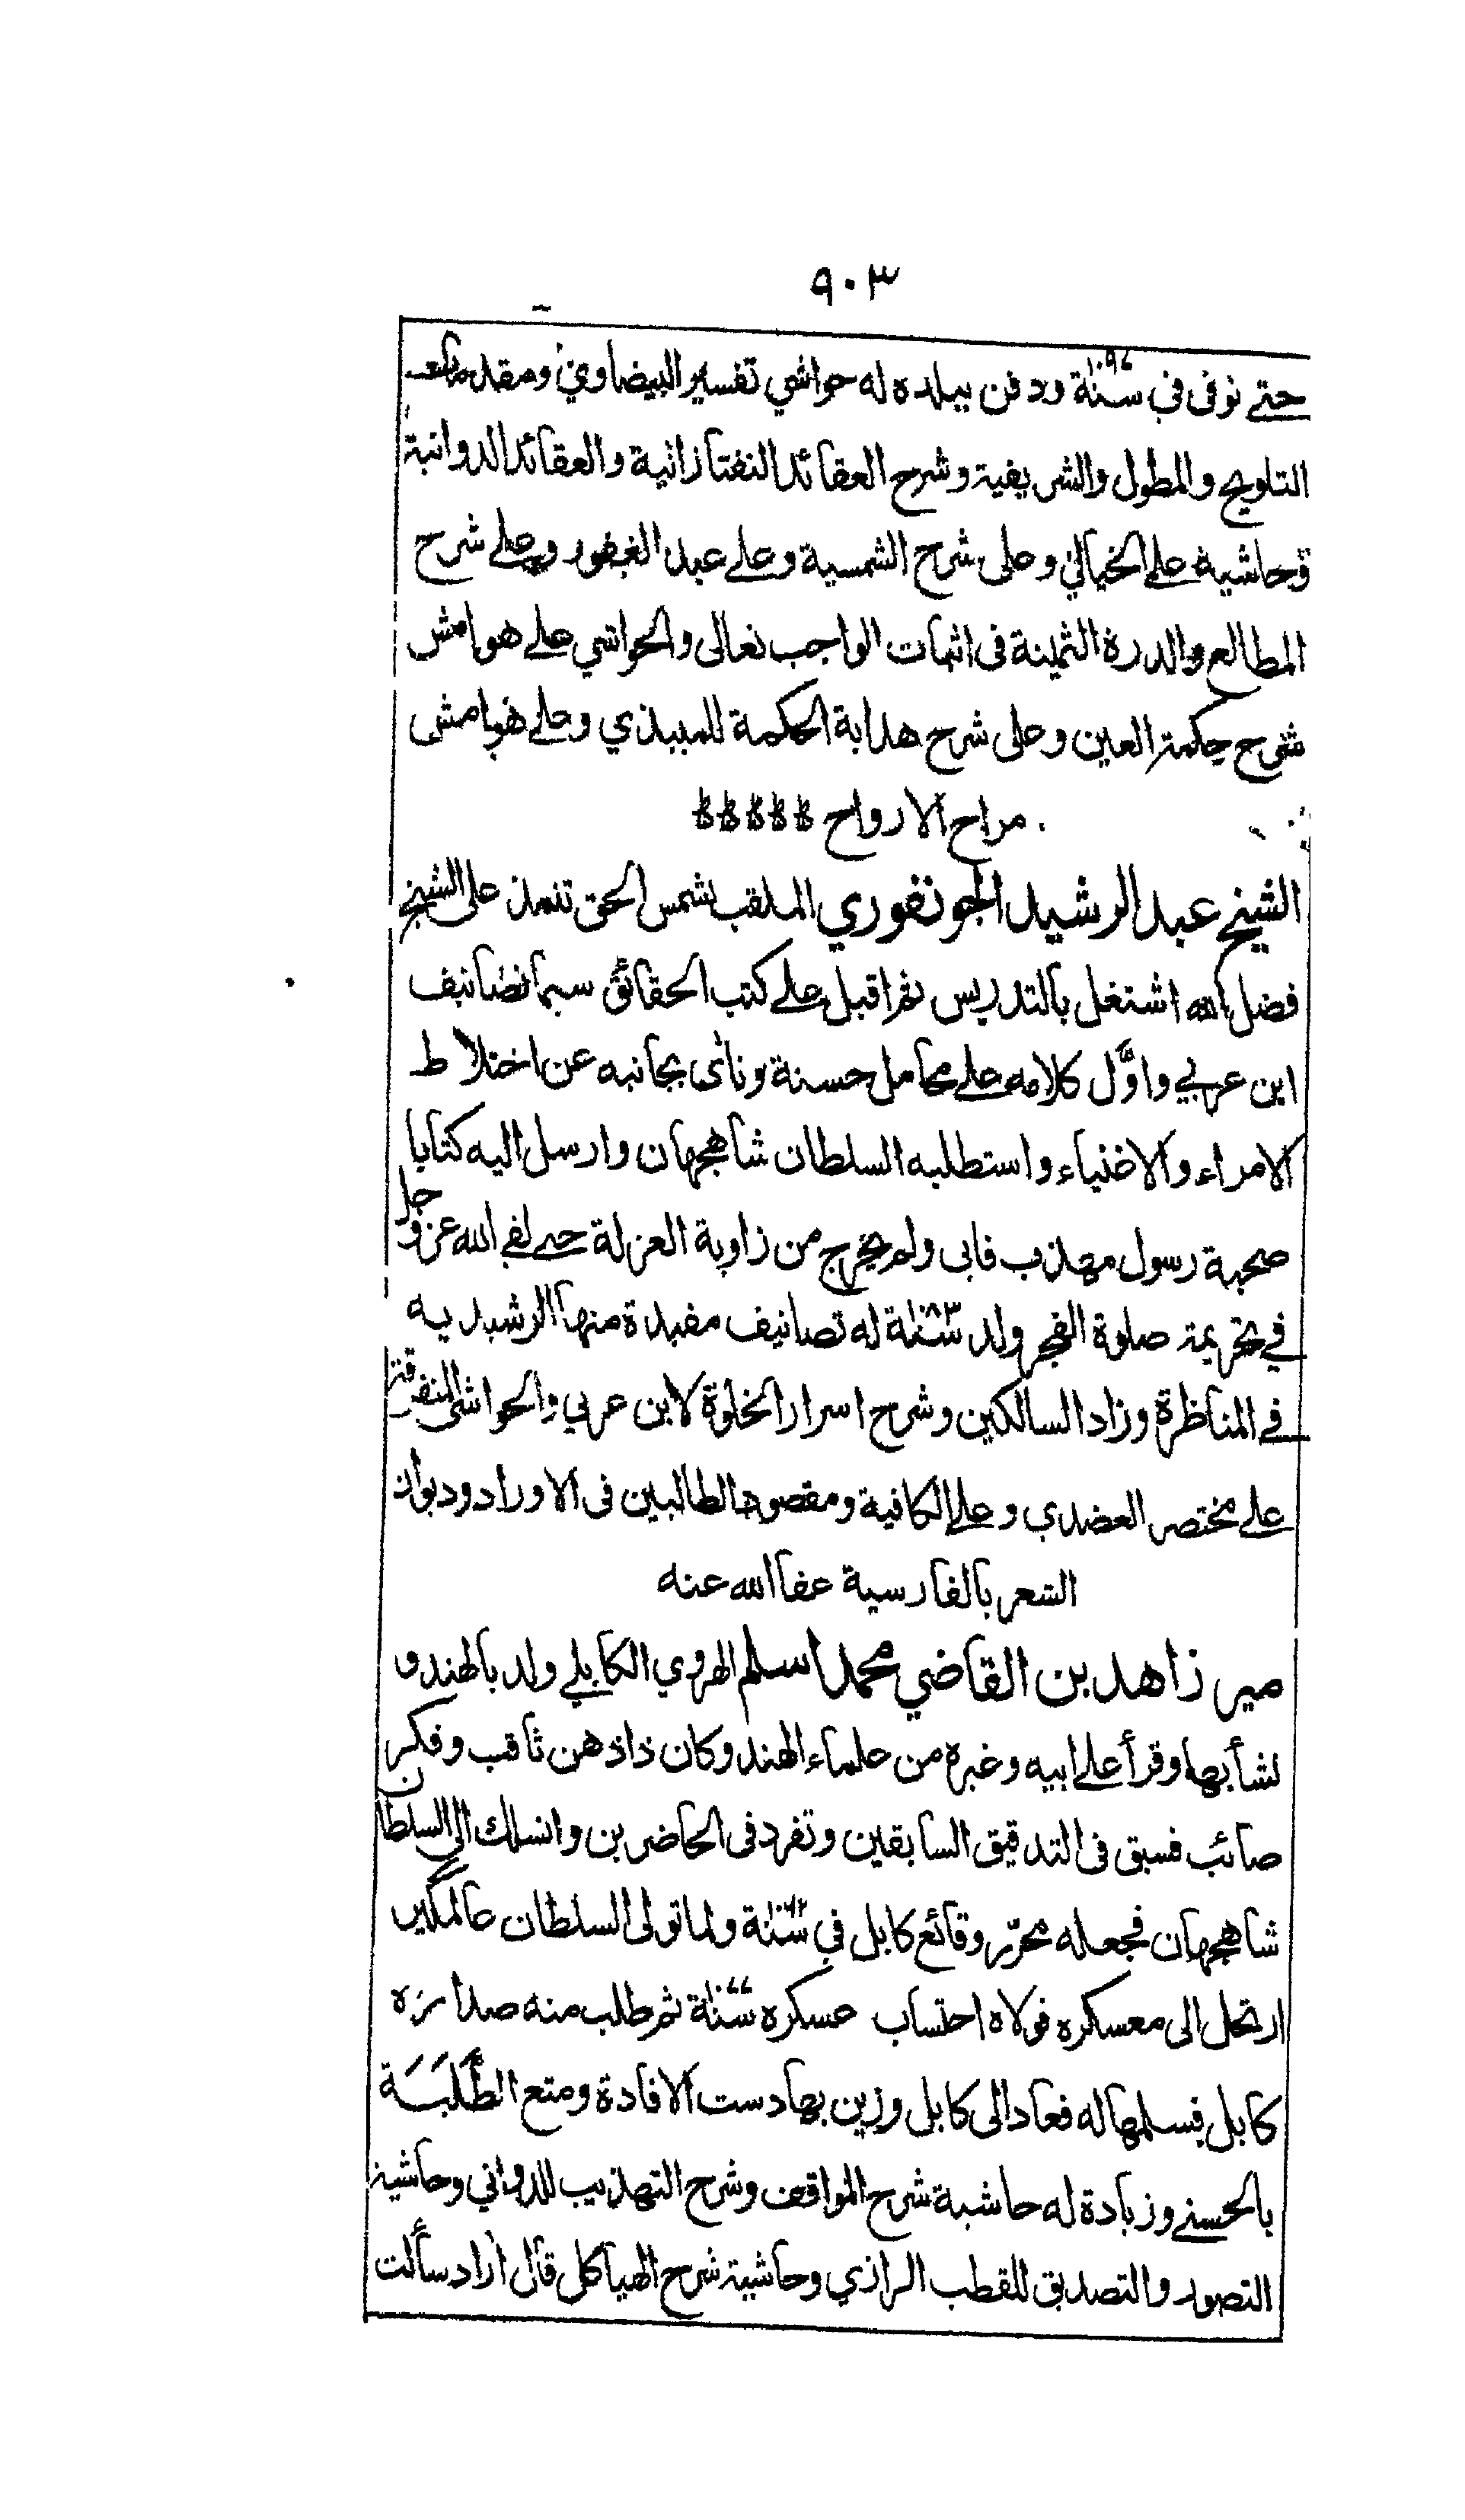 ٩٠٣
حتے توفي في سنة ١٠٩٧ ودفن ببلده له حواشي تفسير البيضاوي ومقدمات
التلويح والمطول والشريفية وشرح العقائد التفتازانية والعقائد الدوانية
وحاشية علے الخيالي وعلى شرح الشمسية وعلے عبد الغفور وعلے شرح
المطالع والدرة الثمينة في اثبات الواجب تعالى والحواشي علے هوامش
شرح حكمة العين وعلى شرح هداية الحكمة للميبذي وعلے هوامش
مراح الارواح
الشيخ عبد الرشيد الجونفوري الملقب بشمس الحق تتلمذ على الشيخ
فضل الله اشتغل بالتدريس ثم اقبل علے كتب الحقائق سيما تصانيف
ابن عربي واوَّل كلامه علے محامل حسنة ونأى بجانبه عن اختلاط
الامراء والاغنياء واستطلبه السلطان شاهجهان وارسل اليه كتابا
صحبة رسول مهذب فابى ولم يخرج من زاوية العزلة حتے لقي الله عز وجل
في تحريمة صلوة الفجر ولد سنة ١٠٨٣ له تصانيف مفيدة منها الرشيديه
في المناظرة وزاد السالكين وشرح اسرار الخلوة لابن عربي والحواشي المتفرقة
علے مختصر العضدي وعلے الكافية ومقصود الطالبين في الاوراد وديوان
الشعر بالفارسية عفا الله عنه
مير زاهد بن القاضي محمد اسلم الهروي الكابلي ولد بالهند و
نشأ بها وقرأ علے ابيه وغيره من علماء الهند وكان ذا ذهن ثاقب وفكر
صائب فسبق في التدقيق السابقين وتفرد في الحاضرين وانسلك الى السلطان
شاهجهان فجعله محرّر وقائع كابل في سنة ولما تولى السلطان عالمگير
ارتحل الى معسكره فولاه احتساب عسكره سنة ١٠٧٧ ثم طلب منه صدارة
كابل فسلمها له فعاد الى كابل وزين بها دست الافادة ومتع الطَّلَبَة
بالحسنے وزيادة له حاشية شرح المواقف وشرح التهذيب للدواني وحاشية
التصور والتصديق للقطب الرازي وحاشية شرح الهياكل قال آزاد سألت